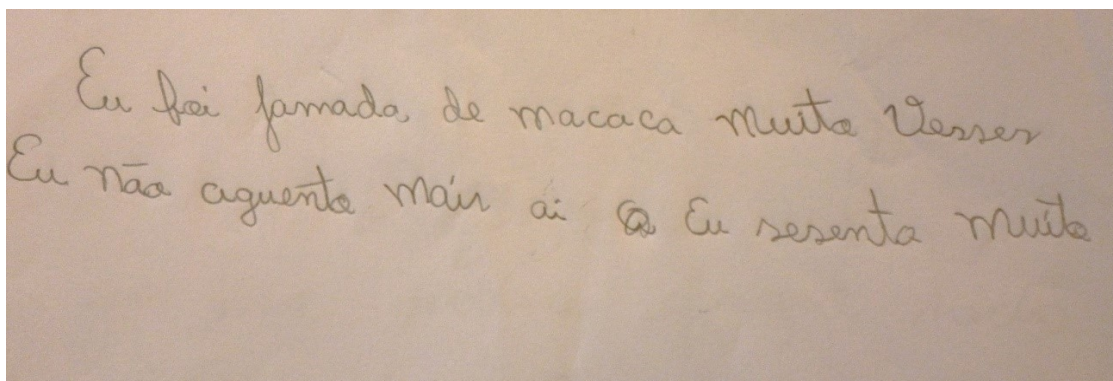 Eu foi famada de macaca muito Vesses
Eu não aguento mais ai Eu sesenta muito